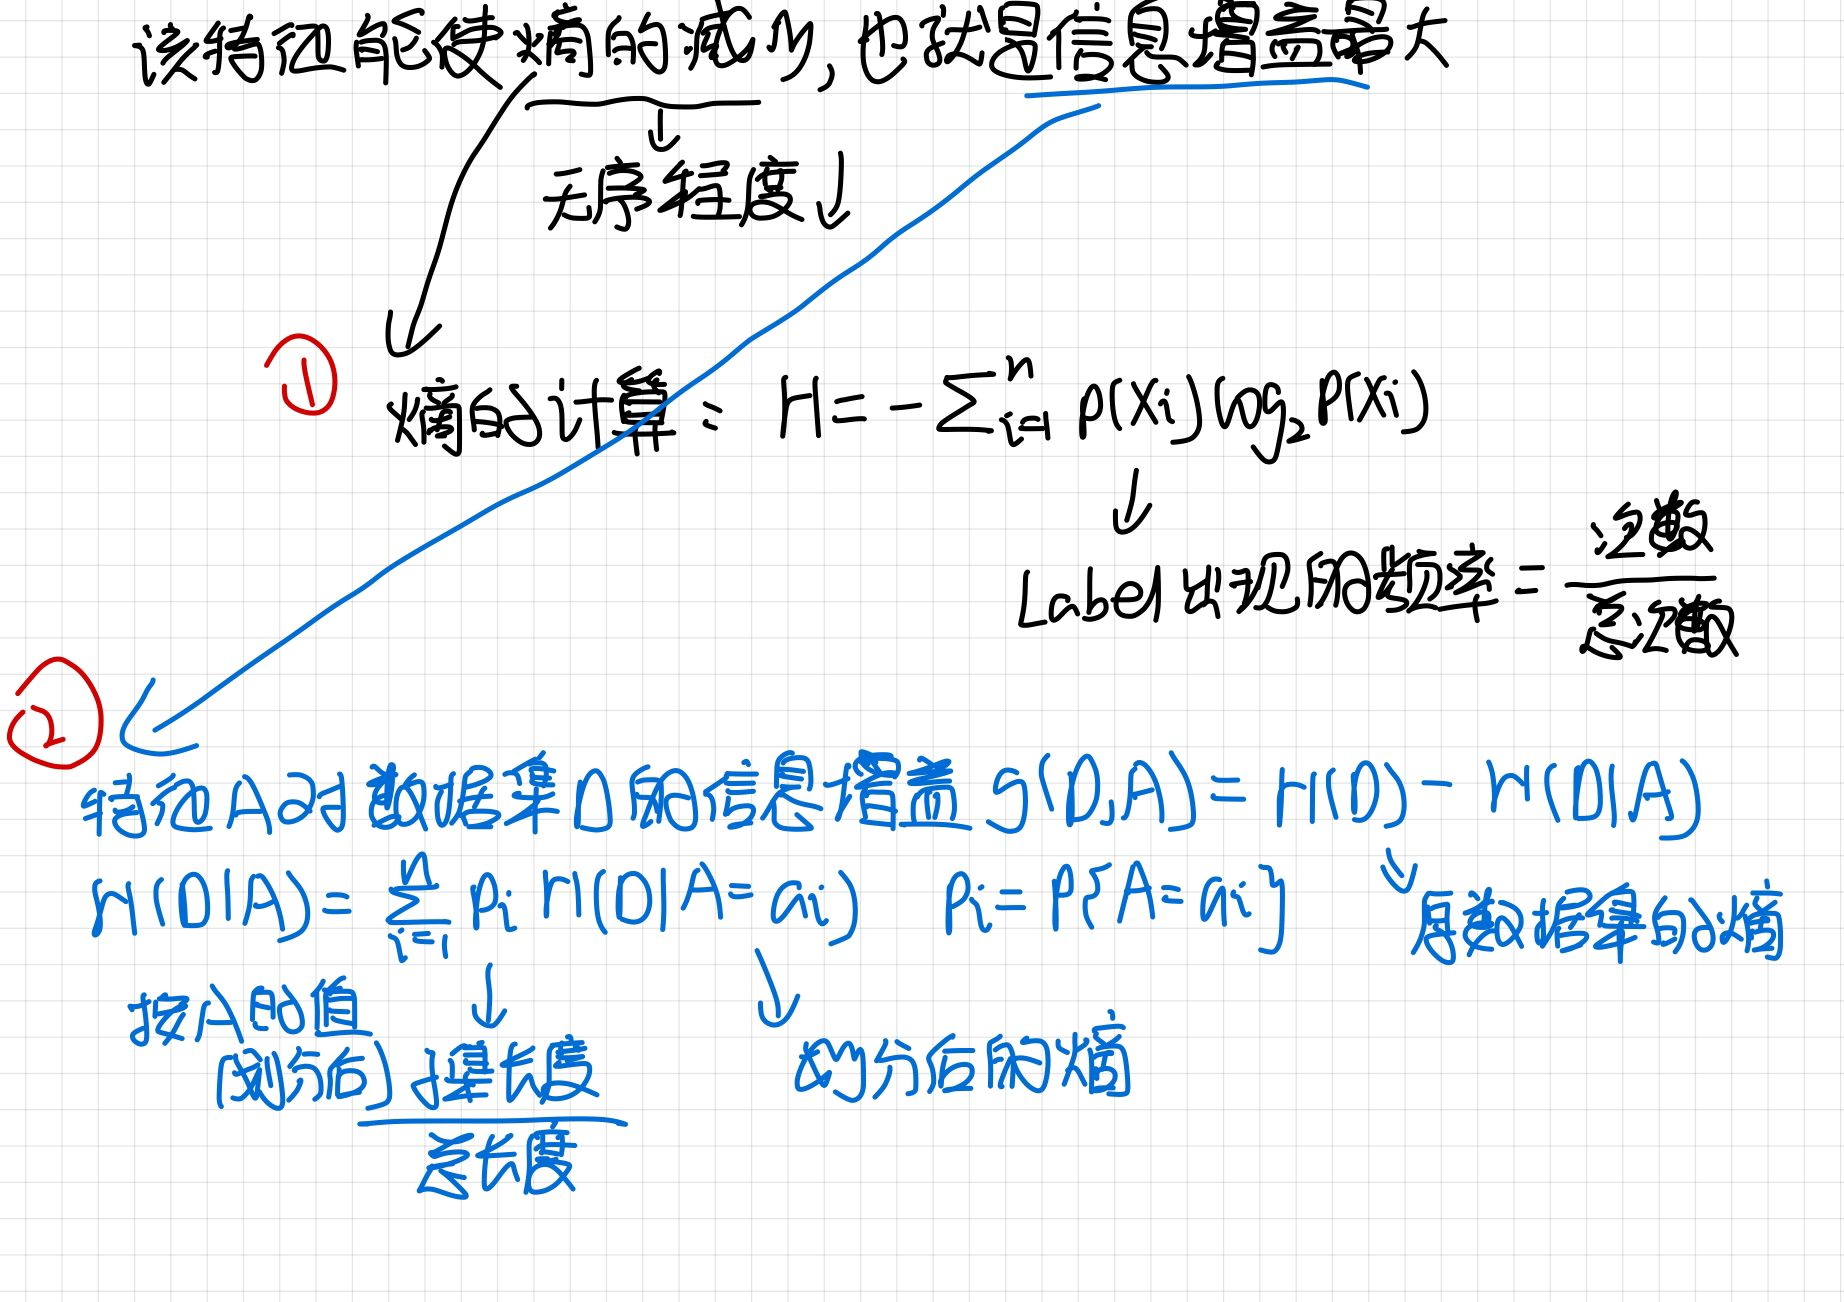 该特征能使熵的减少,也就是信息增益最大
无序程度↓
① 熵的计算: H=-∑ⁿᵢ₌₁ P(Xi)log₂P(Xi)
Label出现的频率=次数/总次数
②
特征A对数据集D的信息增益 g(D,A)=H(D)-H(D|A)
H(D|A)=∑ⁿᵢ₌₁ Pi H(D|A=ai) Pi=P{A=ai}
原数据集的熵
按A的值
(划分后) 集长度/总长度
划分后的熵